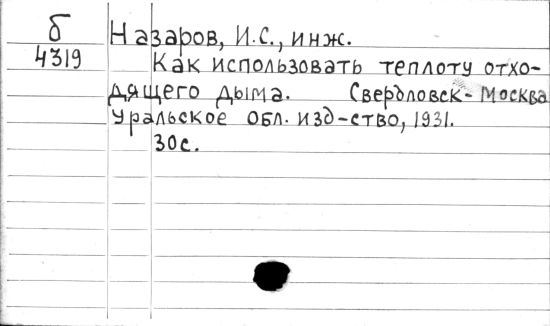 б
4319
Назаров, И.С., инж.
Как использовать теплоту отхо-
дящего дыма. Свердловск-Москва
Уральское обл. изд-ство, 1931.
30с.